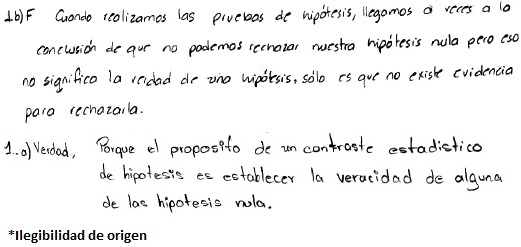 1b) F Cuando realizamos las pruebas de hipótesis, llegamos a veces a la
conclusión de que no podemos rechazar nuestra hipótesis nula pero eso
no significa la verdad de una hipótesis, sólo es que no existe evidencia
para rechazarla.
1..a) Verdad, Porque el proposito de un contraste estadistico
de hipotesis es establecer la veracidad de alguna
de las hipotesis nula.
*Ilegibilidad de origen